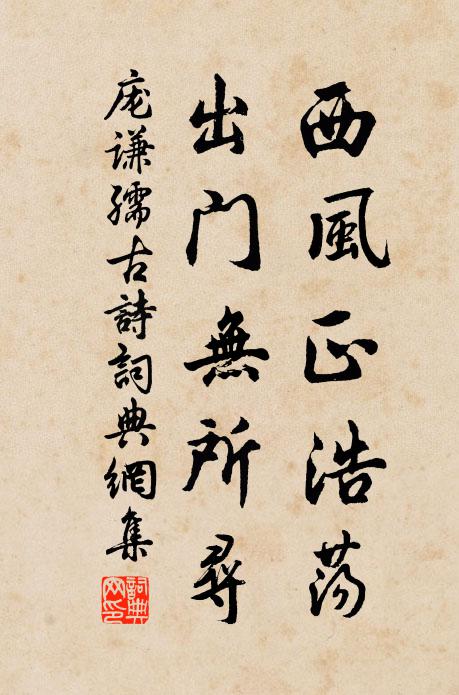 西風正浩蕩
出門無所尋
庞謙孺古詩詞典網集
詞典网印